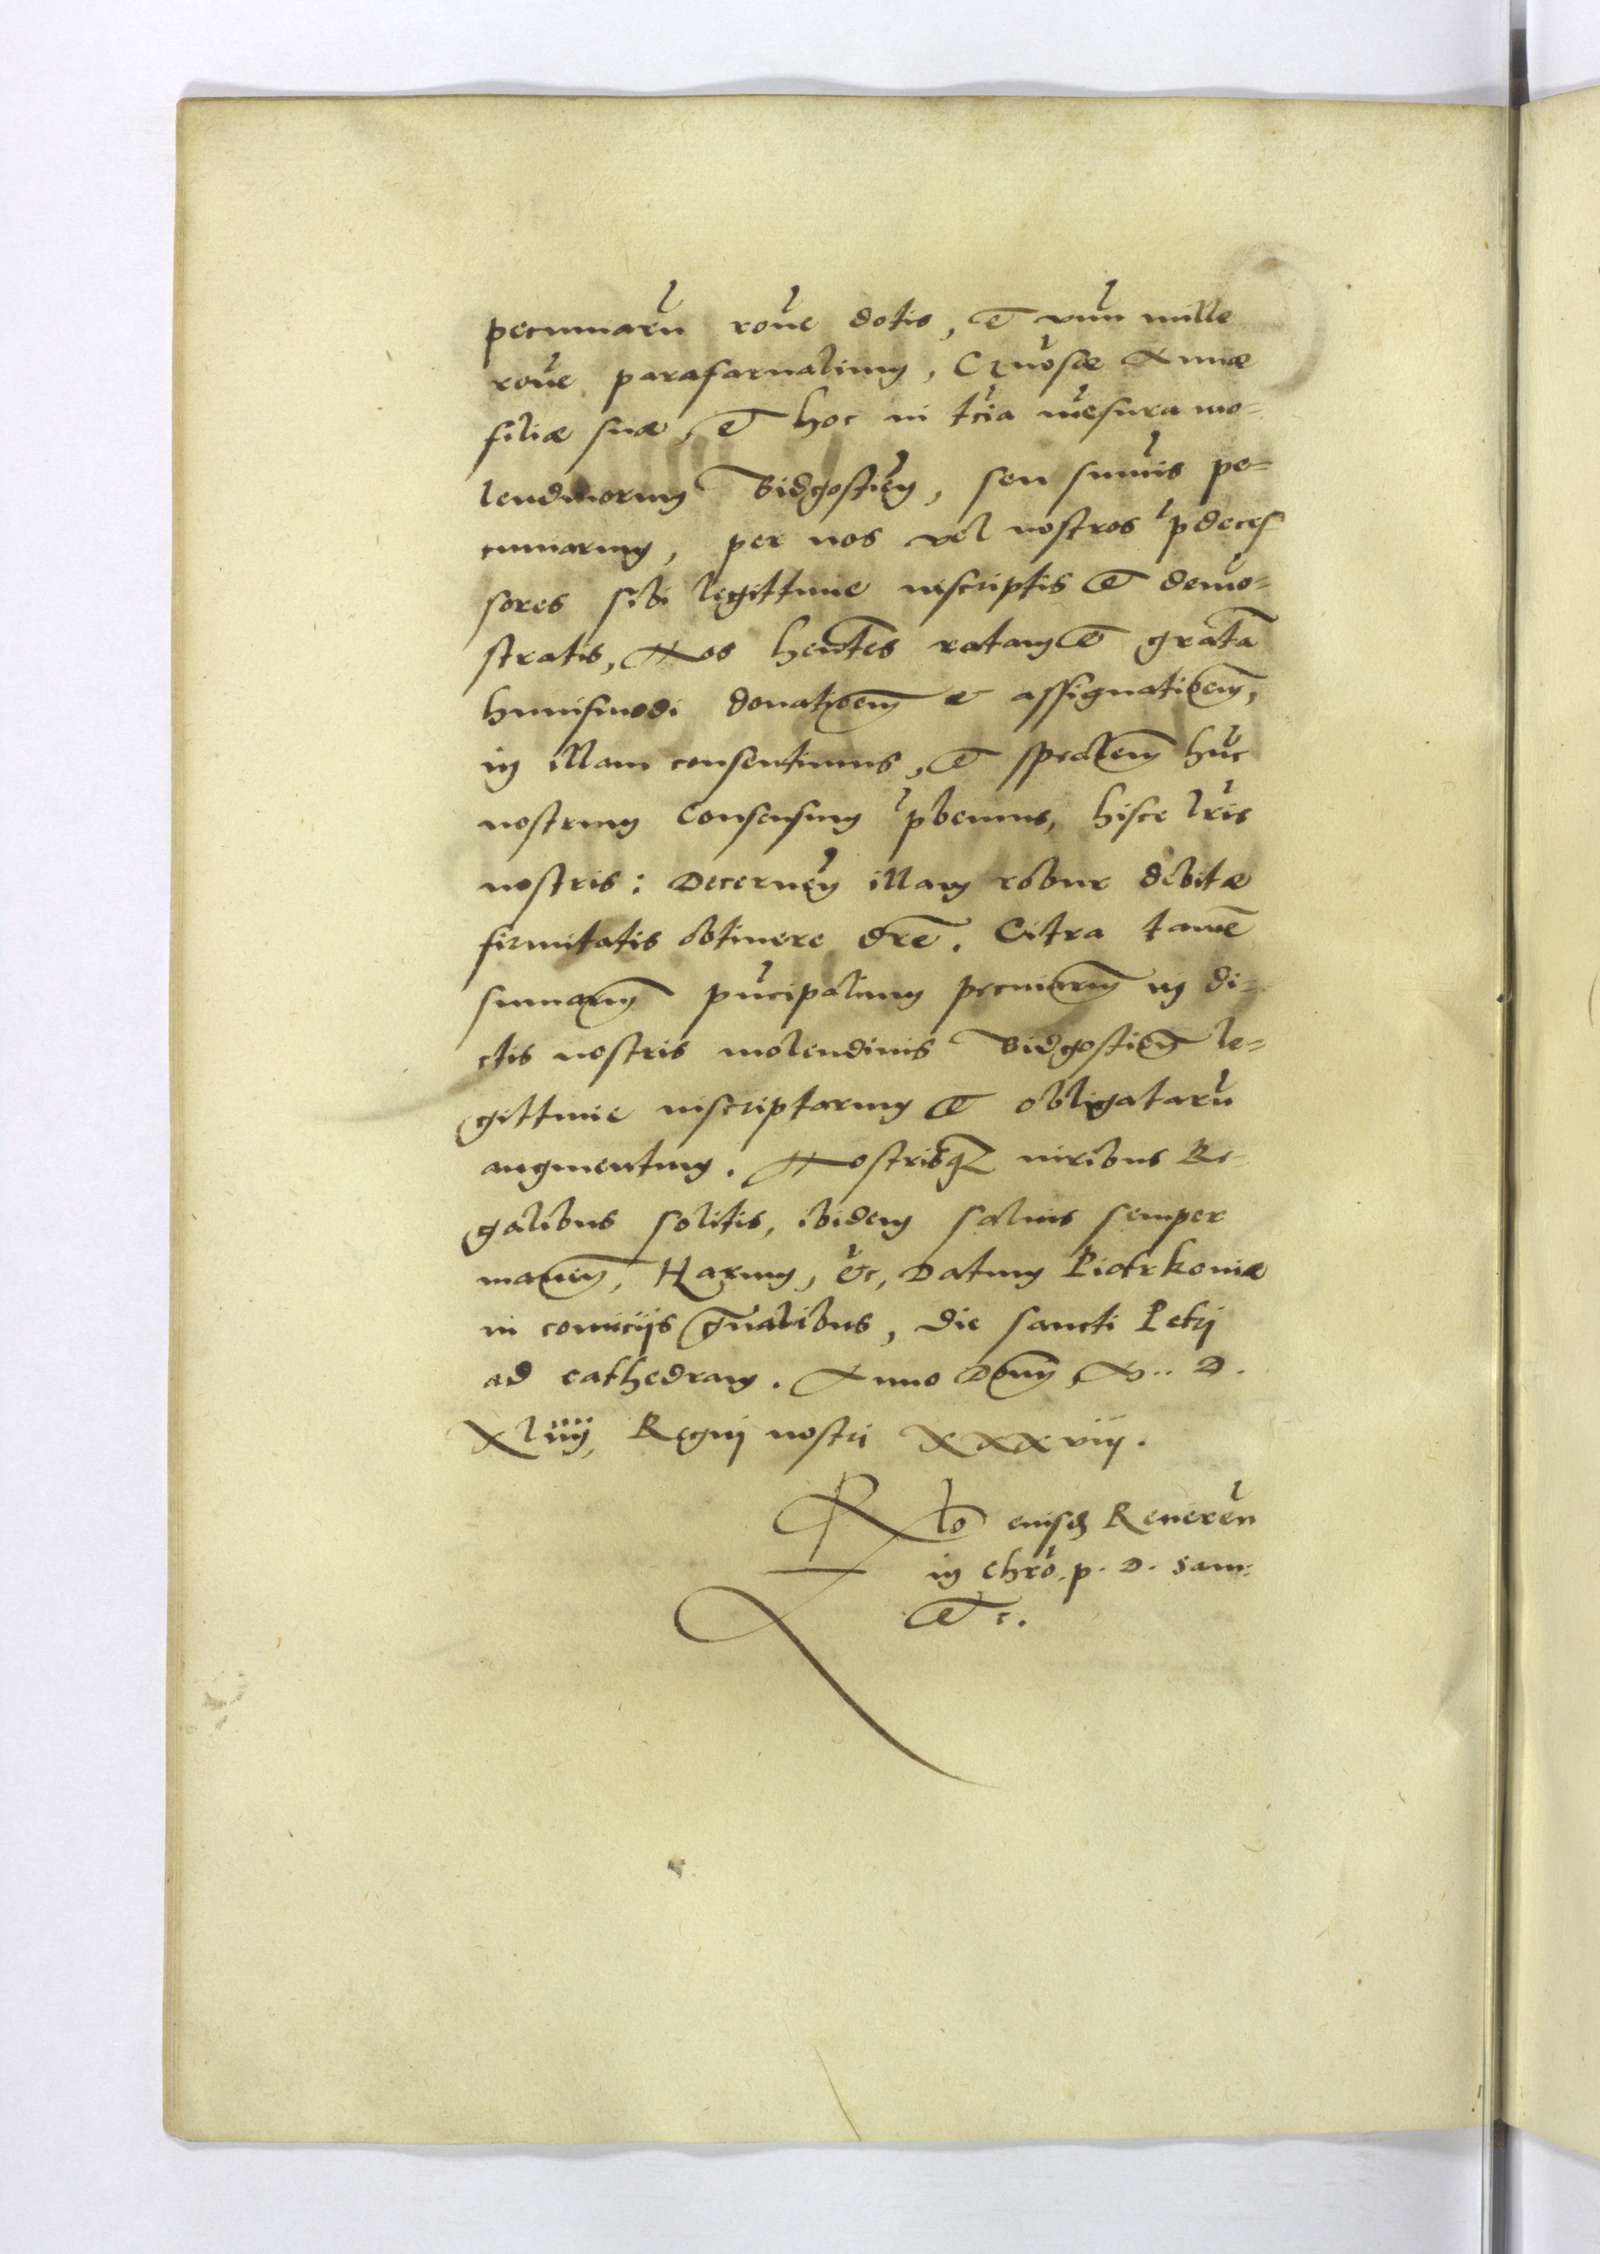 pecuniaru roue dotis, et vnu mille
roue parafarnalium, Gnosae Annae
filiae suae, et hoc in tcia mesura mo-
lendinorum Bidgostien, seu sumis pe-
cuniarum, per nos vel nostros pdeces
sores sibi legittime inscriptis et demo-
stratis, Nos hentes ratam et grata
huiusmodi donationem et assignationem,
in illam consentimus, et spealem huc
nostrum consensum pbemus, hisce lris
nostris: Decernen illam robur debitae
firmitatis obtinere dre. Citra tame
sumarum pncipalium pecuniarum in di-
ctis nostris molendinis Bidgostien le-
gittime inscriptarum et obligataru
augmentum. Nostrisq iuribus Re-
galibus solitis, ibidem saluis semper
manen, Harum, &c, Datum Piotrkouiae
in comicijs gnalibus, die sancti Petrj
ad cathedram. Anno Dom M.. D.
Xliiij, Regnj nostri XXXviij.
Rlo eiusd Reueren
in chro. p. D. Sam:
et c.